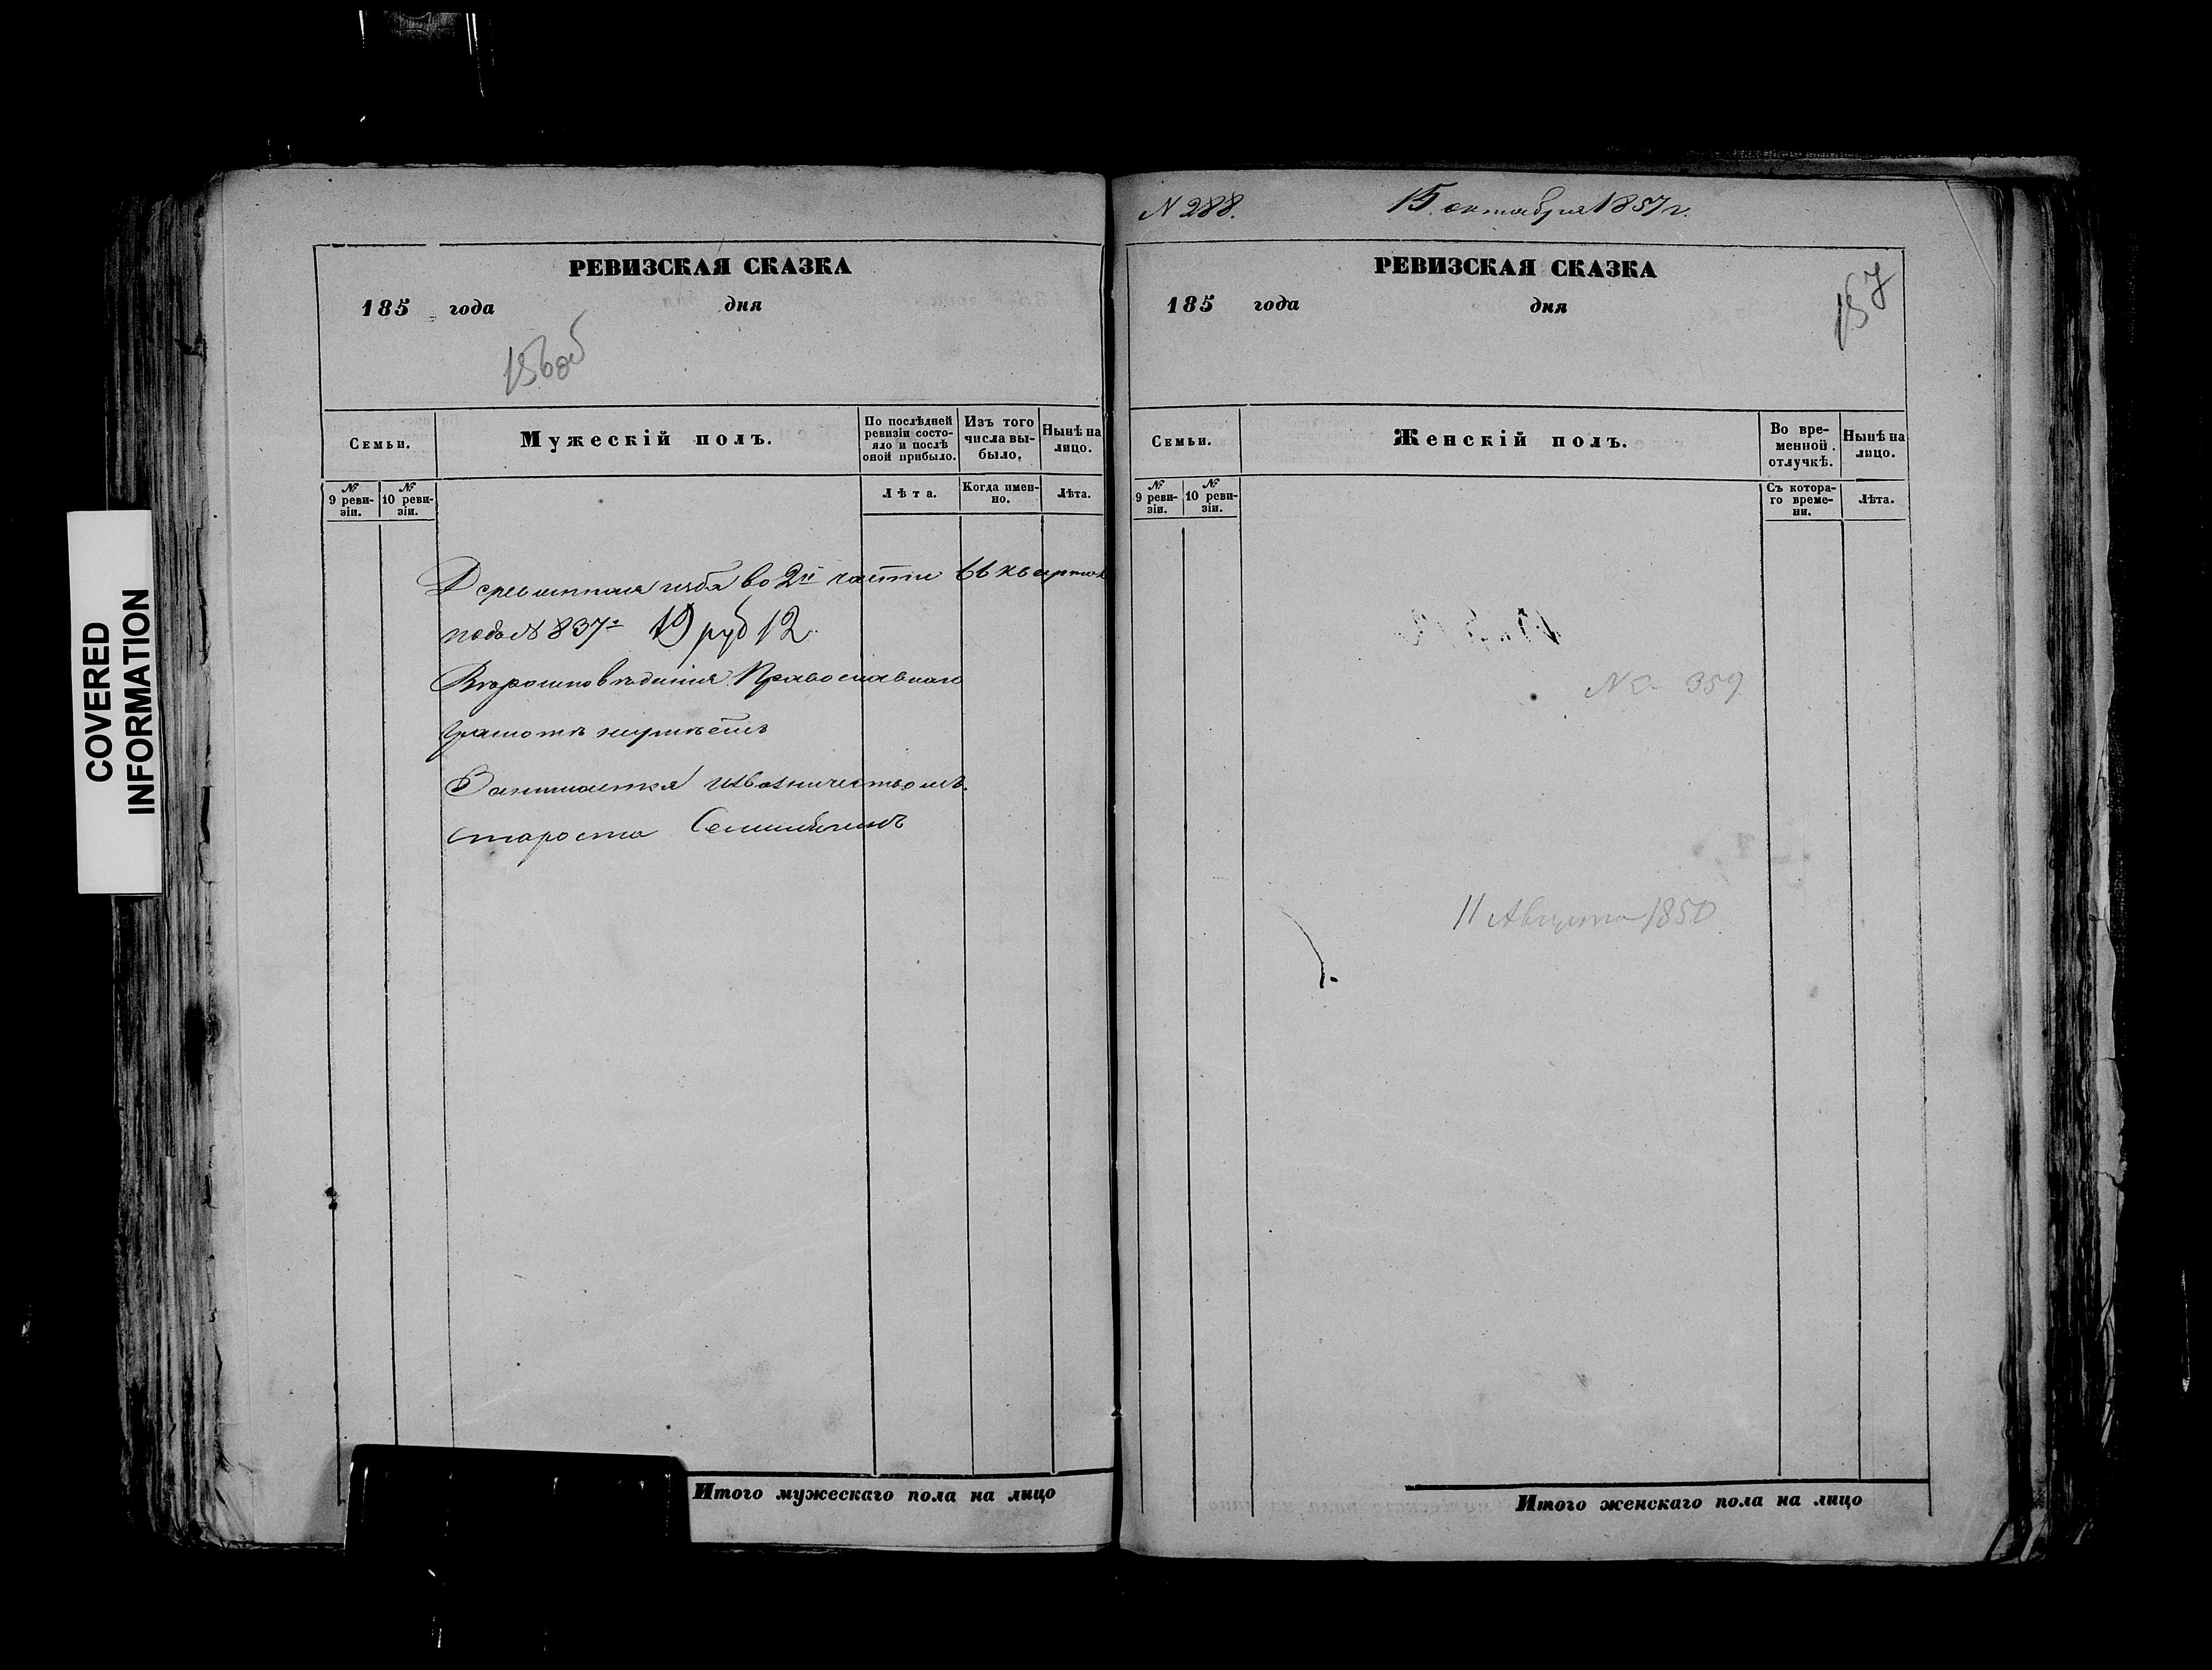 COVERED
INFORMATION
РЕВИЗСКАЯ СКАЗКА
185 года дня
156об
Семьи.
Мужескій полъ.
По послѣдней ревизіи состояло и послѣ оной прибыло.
Изъ того числа выбыло.
Нынѣ на лицо.
№ 9 ревизіи.
№ 10 ревизіи.
Лѣта.
Когда именно.
Лѣта.
Деревянная изба во 2й части 66 квартала
подъ № 837м 19 руб 12
Вѣроисповѣданія Православнаго
Грамотѣ неумѣетъ
Занимается извозничествомъ.
Староста
Итого мужескаго пола на лицо
N 288. 15 октября 1857 г.
РЕВИЗСКАЯ СКАЗКА
157
185 года дня
Семьи.
Женскій полъ.
Во временной отлучкѣ.
Нынѣ на лицо.
№ 9 ревизіи.
№ 10 ревизіи.
Съ котораго времени.
Лѣта.
№ 359
11 Августа 1850
Итого женскаго пола на лицо